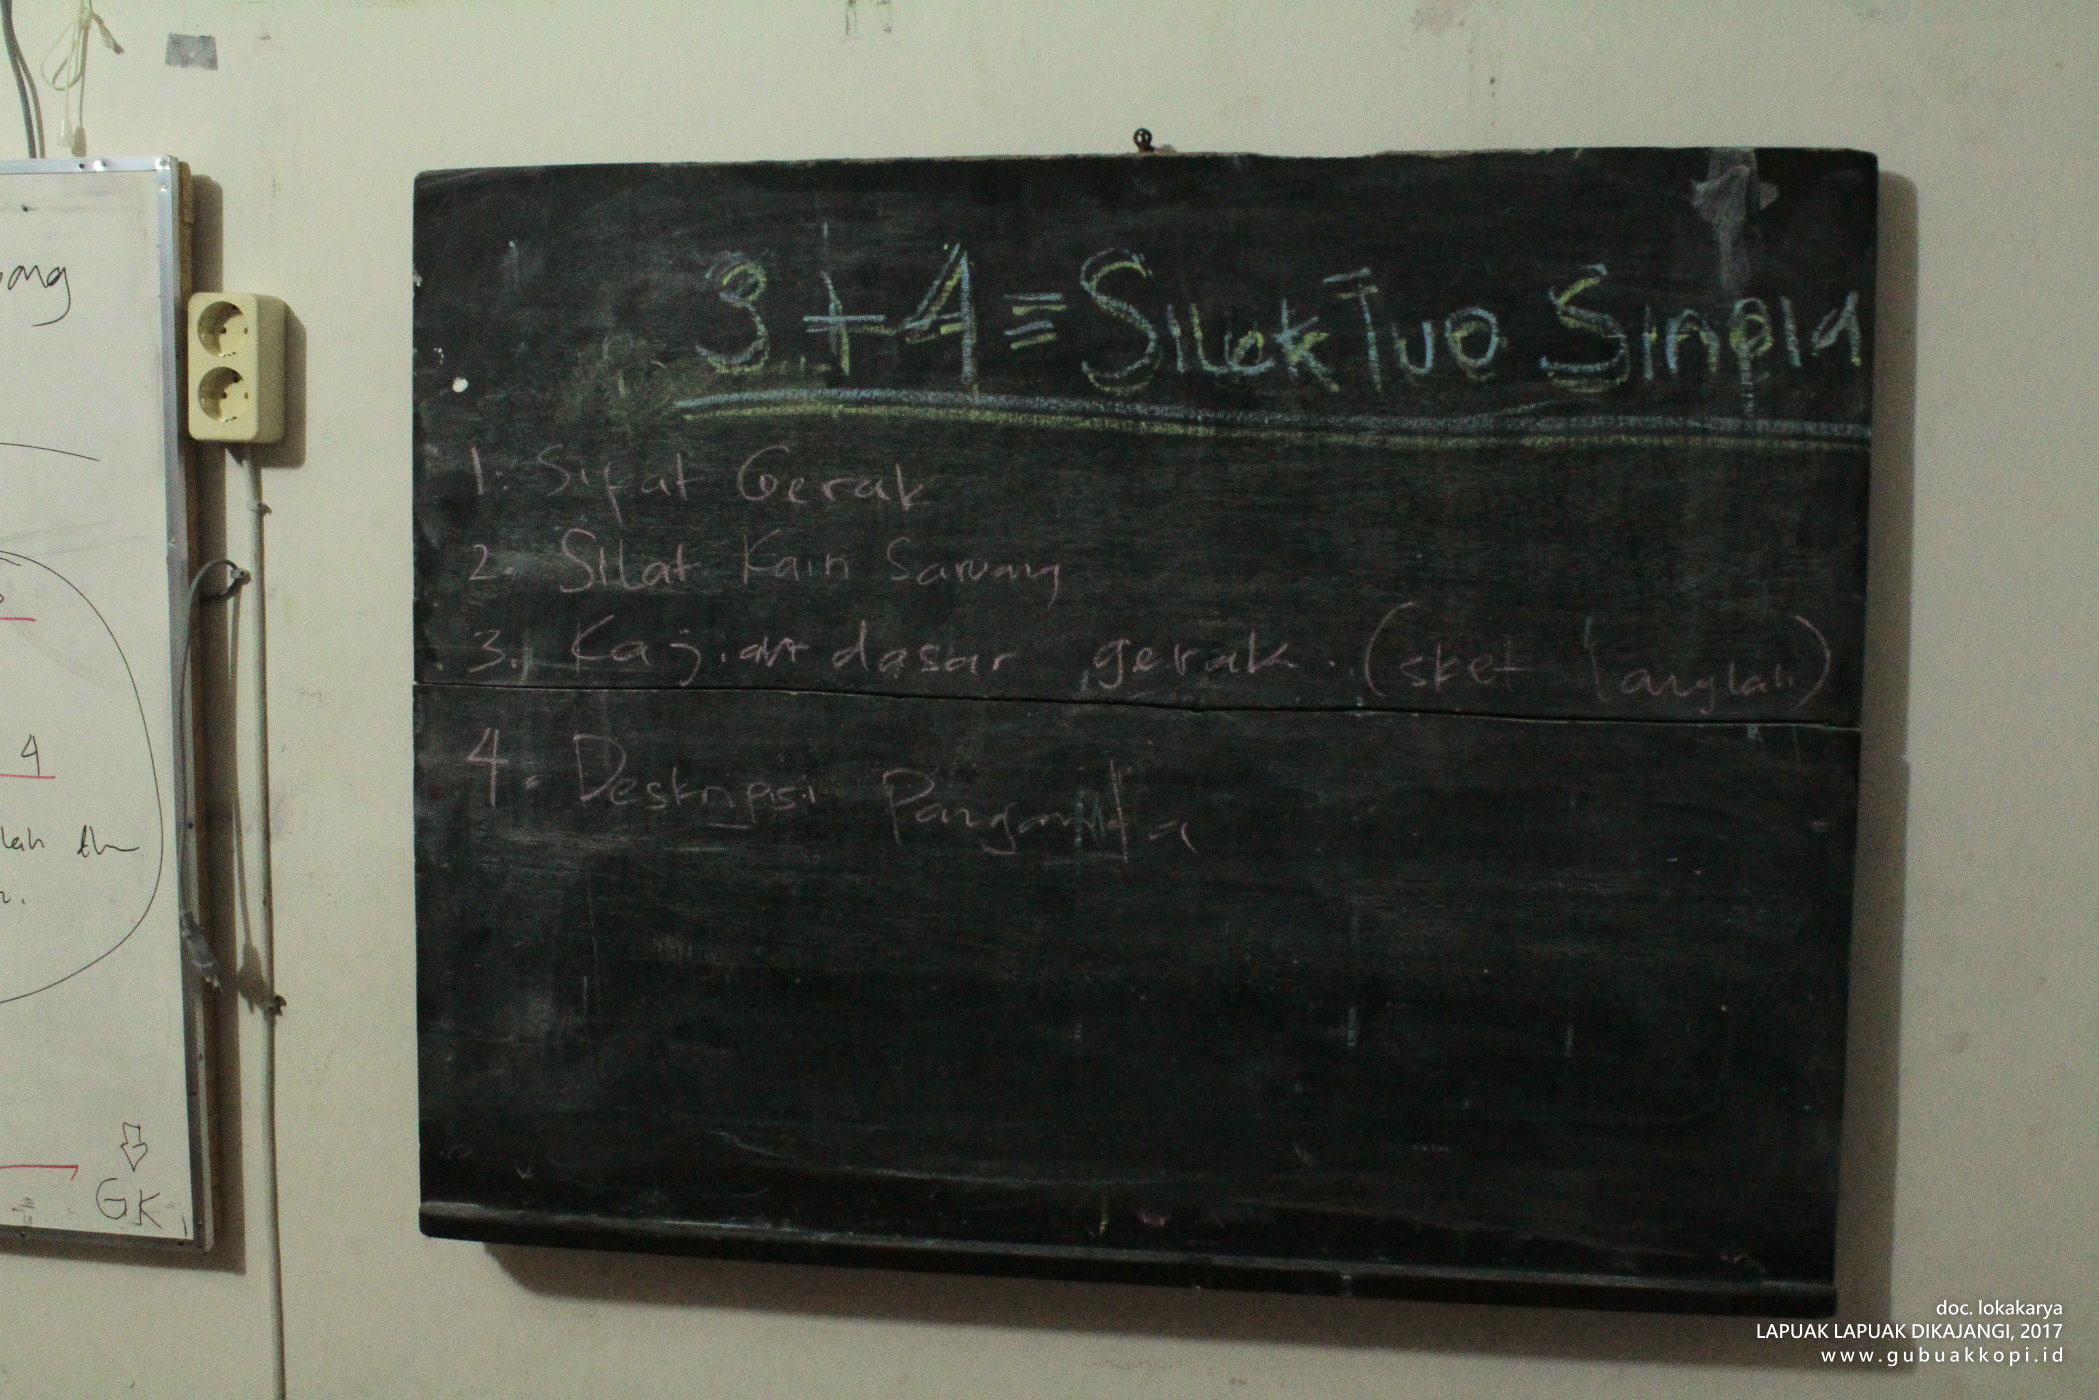 ong
4
lah
GK
3 + 4 = Silek Tuo Singla
1. Sifat Gerak
2. Silat Kain Saruang
3. Kajian dasar gerak. (sket langlah)
4. Deskripsi
doc. lokakarya
LAPUAK LAPUAK DIKAJANGI, 2017
www.gubuakkopi.id